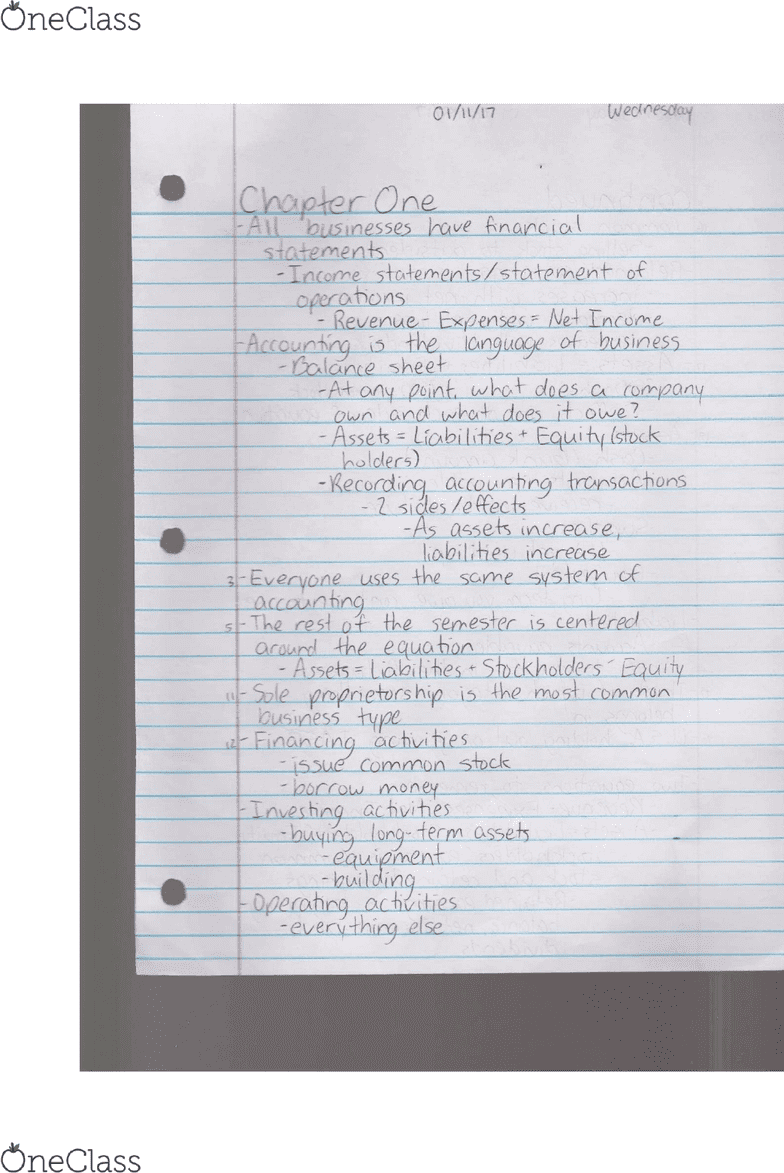 OneClass
01/11/17 Wednesday
Chapter One
-All businesses have financial
statements
-Income statements/statement of
operations
-Revenue - Expenses = Net Income
-Accounting is the language of business
-Balance sheet
-At any point, what does a company
own and what does it owe?
-Assets = Liabilities + Equity (stock
holders)
-Recording accounting transactions
- 2 sides/effects
-As assets increase,
liabilities increase
3 -Everyone uses the same system of
accounting
5 -The rest of the semester is centered
around the equation
-Assets = Liabilities + Stockholders' Equity
11 -Sole proprietorship is the most common
business type
12 -Financing activities
-issue common stock
-borrow money
-Investing activities
-buying long-term assets
-equipment
-building
-Operating activities
-everything else
OneClass